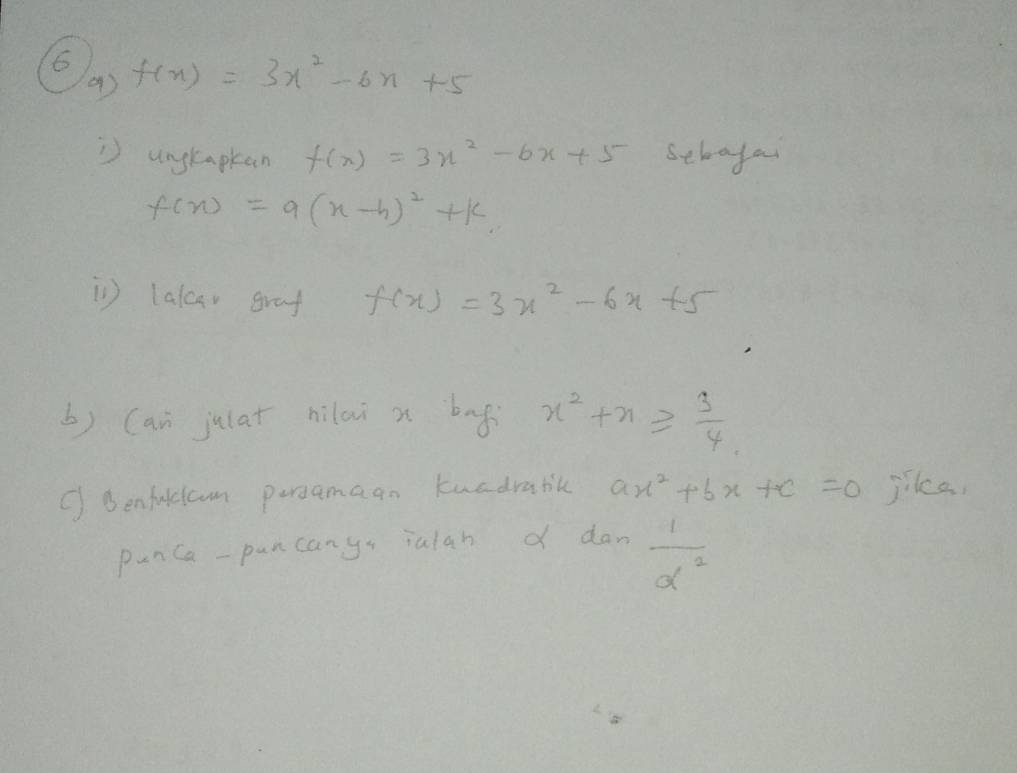 6 a) f(x) = 3x² - 6x + 5
i) ungkapkan f(x) = 3x² - 6x + 5 sebagai
f(x) = a(x-h)² + k.
ii) lakar graf f(x) = 3x² - 6x + 5
b) Cari julat nilai x bagi x² + x ≥ 3/4.
c) Bentukkan persamaan kuadratik ax² + bx + c = 0 jika
punca - puncanya ialah α dan 1/α²